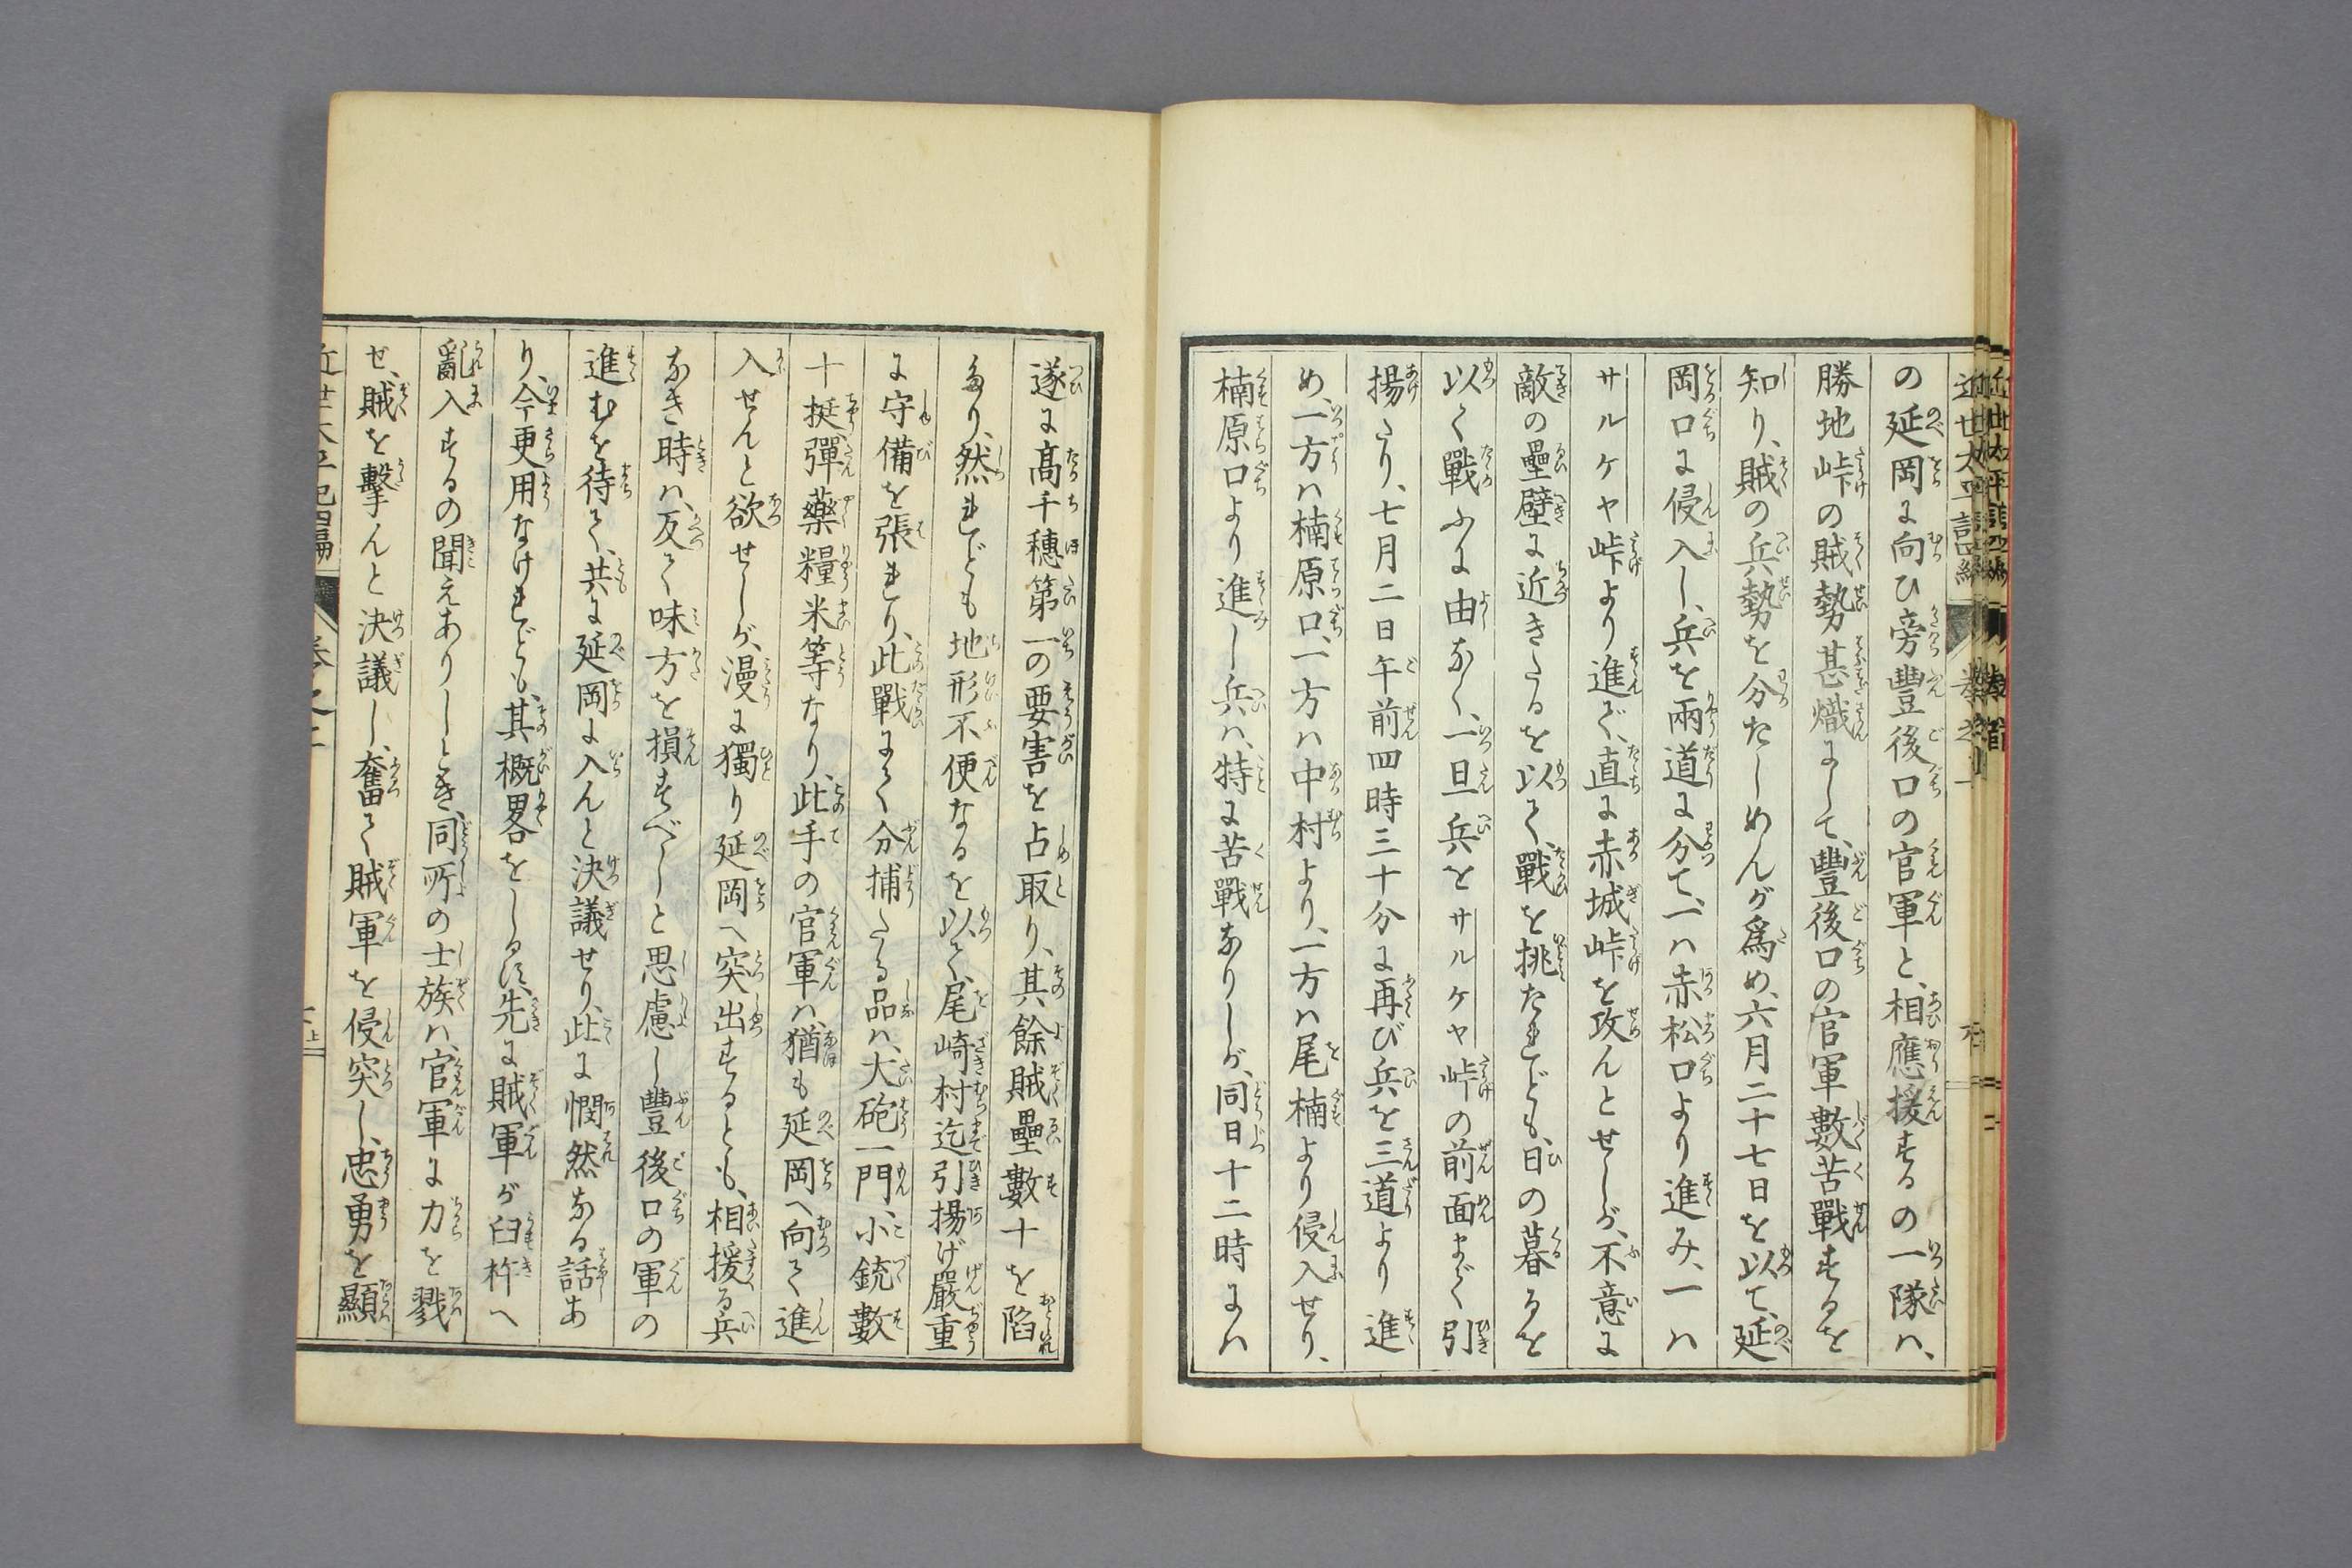 の延岡に向ひ旁豐後口の官軍と、相應援するの一隊ハ、
勝地峠の賊勢甚熾にして、豐後口の官軍數苦戰するを
知り、賊の兵勢を分たしめんが爲め、六月二十七日を以て、延
岡口に侵入し、兵を兩道に分て、一ハ赤松口より進み、一ハ
サルケヤ峠より進で、直に赤城峠を攻んとせしが、不意に
敵の壘壁に近きたるを以て、戰を挑たれども、日の暮るを
以て戰ふに由なく、一旦兵をサルケヤ峠の前面まで引
揚たり、七月二日午前四時三十分に再び兵を三道より進
め、一方ハ楠原口、一方ハ中村より、一方ハ尾楠より侵入せり、
楠原口より進し兵ハ、特に苦戰なりしが、同日十二時にハ
遂に髙千穗第一の要害を占取り、其餘賊壘數十を陷
たり、然れども地形不便なるを以て、尾崎村迄引揚げ嚴重
に守備を張れり、此戰にて分捕たる品ハ、大砲一門、小銃數
十挺彈藥糧米等なり、此手の官軍ハ、猶も延岡へ向て進
入せんと欲せしが、漫に獨り延岡へ突出するとも、相援る兵
なき時ハ、反て味方を損すべしと思慮し豐後口の軍の
進むを待て、共に延岡に入んと決議せり、此に憫然なる話あ
り、今更用なけれども、其概畧をしるす、先に賊軍が臼杵へ
亂入するの聞えありしとき、同所の士族ハ、官軍に力を戮
せ、賊を擊んと決議し、奮て賊軍を侵突し、忠勇を顯